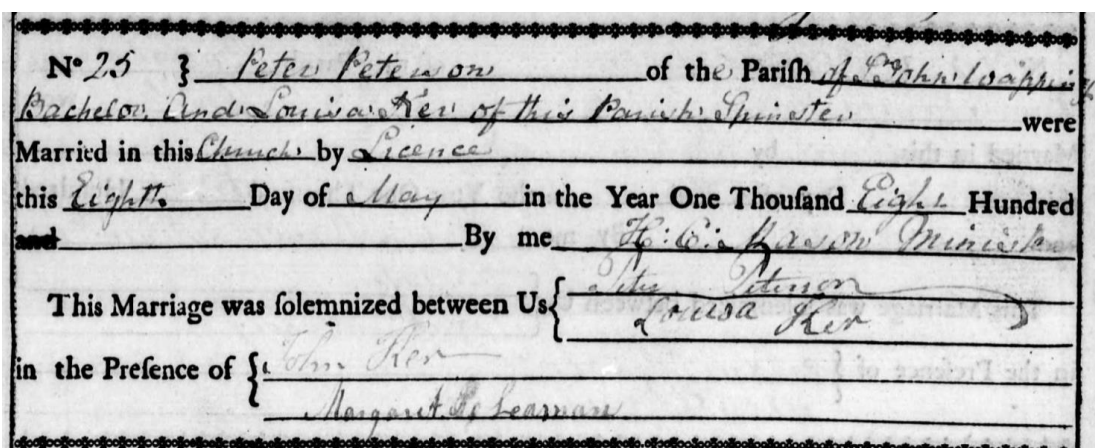 No 25 } Peter Peterson of the Pariſh of St John Wapping
Bachelor and Louisa Ker of this Parish Spinster were
Married in this Church by Licence
this Eighth Day of May in the Year One Thouſand Eight Hundred
and By me H: C: Mason Minister
This Marriage was ſolemnized between Us { Peter Peterson
Louisa Ker
in the Preſence of { John Ker
Margaret Leaman